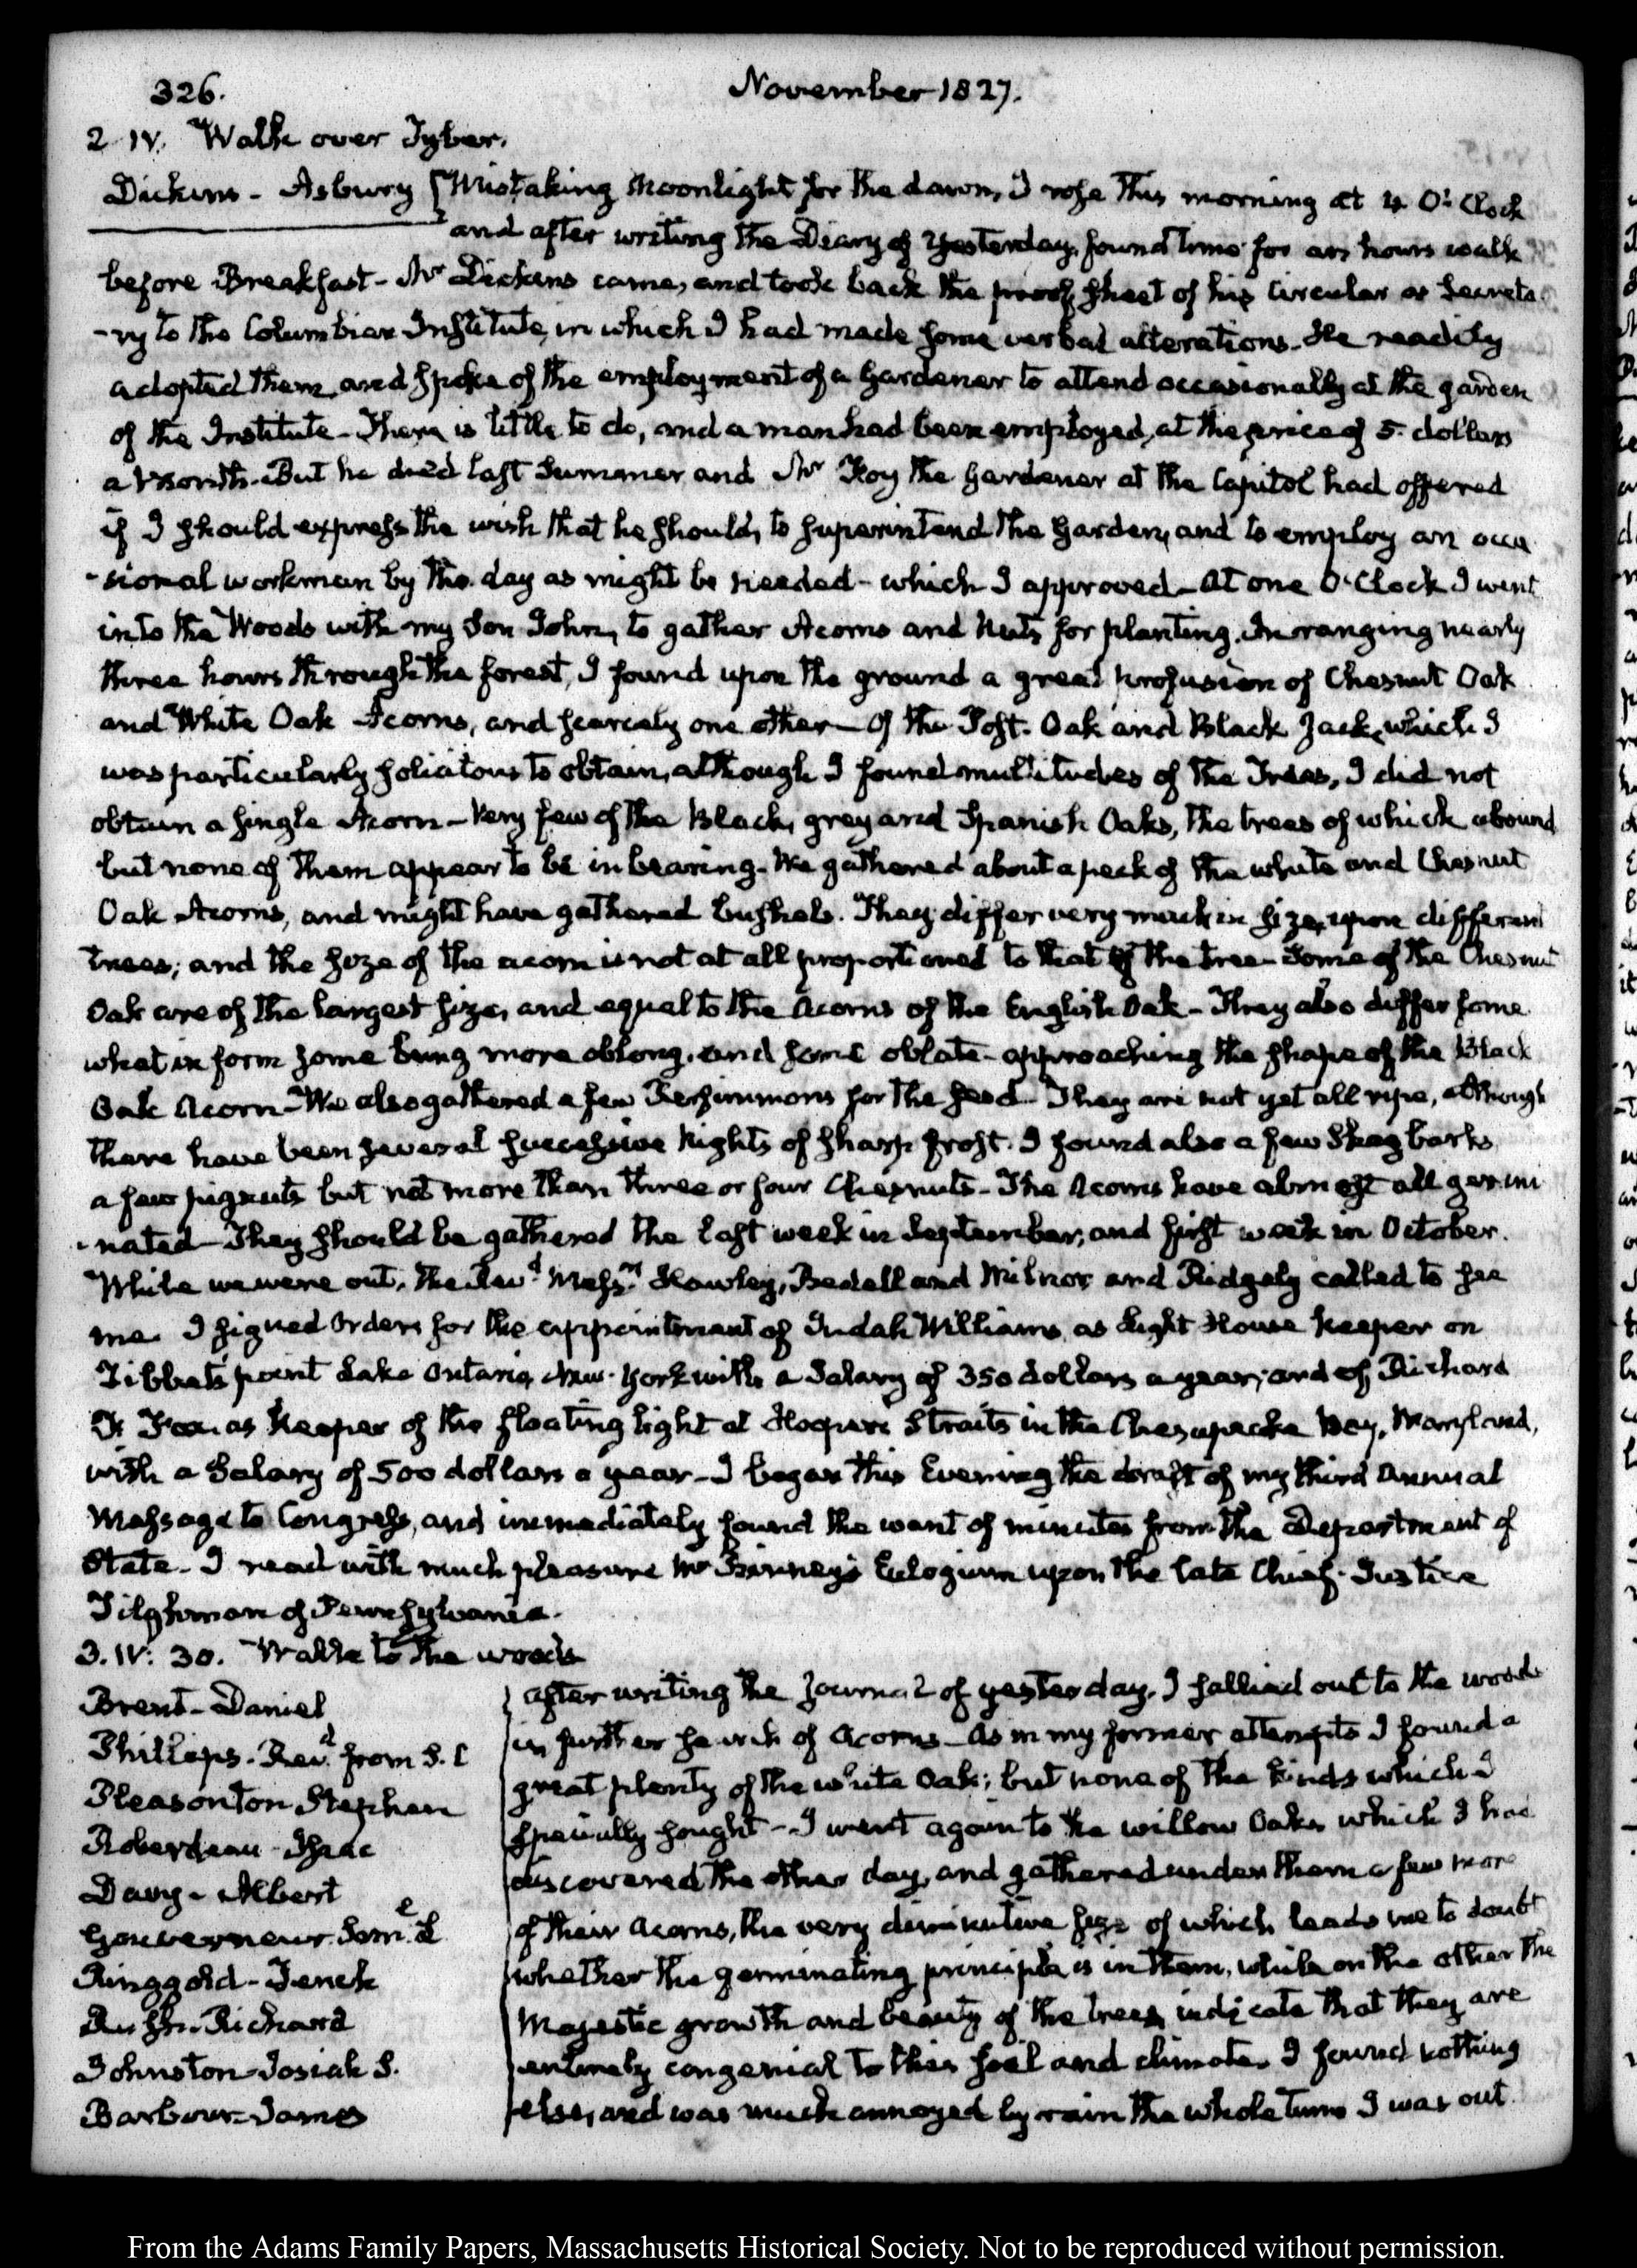 326.
November 1827.
2 IV. Walk over Tyber.
Dickins - Asbury Mistaking Moonlight for the dawn, I rose this morning at 4 O'Clock
and after writing the Diary of Yesterday, found time for an hours walk
before Breakfast - Mr Dickins came, and took back the proof sheet of his Circular as Secreta
-ry to the Columbian Institute, in which I had made some verbal alterations. He readily
adopted them and spoke of the employment of a Gardener to attend occasionally at the garden
of the Institute - There is little to do, and a man had been employed, at the price of 5 dollars
a Month. But he died last Summer and Mr Foy the Gardener at the Capitol had offered
if I should express the wish that he should, to superintend the Garden, and to employ an occa
-sional workman by the day as might be needed - which I approved - At one O'Clock I went
into the Woods with my Son John, to gather Acorns and Nuts for planting. In ranging nearly
three hours through the forest, I found upon the ground a great profusion of Chesnut Oak
and White Oak Acorns, and scarcely one other - Of the Post-Oak and Black Jack, which I
was particularly solicitous to obtain, although I found multitudes of the Trees, I did not
obtain a single Acorn - Very few of the Black, grey and Spanish Oaks, the trees of which abound
but none of them appear to be in bearing. We gathered about a peck of the white and Chesnut
Oak Acorns, and might have gathered bushels. They differ very much in size, upon different
trees; and the size of the acorn is not at all proportioned to that of the tree - Some of the Chesnut
Oak are of the largest size, and equal to the Acorns of the English Oak - They also differ some
what in form some being more oblong, and some oblate - approaching the shape of the Black
Oak Acorn - We also gathered a few Persimmons for the seed - They are not yet all ripe, although
there have been several successive Nights of sharp frost. I found also a few Shag barks
a few pignuts but not more than three or four Chesnuts - The Acorns have almost all germi
-nated - They should be gathered the last week in September, and first week in October.
While we were out, the Revd Messrs Hawley, Bedell and Milnor and Ridgely called to see
me. I signed Orders for the appointment of Judah Williams as Light House keeper on
Tibbets point Lake Ontario, New-York with a Salary of 350 dollars a year; and of Richard
as keeper of the floating light at Hoopers Straits in the Chesapeake Bay, Maryland,
with a Salary of 500 dollars a year - I began this Evening the draft of my third Annual
Message to Congress, and immediately found the want of minutes from the Department of
State. I read with much pleasure Mr Binney's Eulogium upon the late Chief-Justice
Tilghman of Pennsylvania.
3. IV: 30. Walk to the woods
Brent - Daniel
Phillips - Revd from S. C
Pleasonton Stephen
Roberdeau - Isaac
Davy - Albert
Gouverneur. Saml. L
Ringgold - Tench
Rush. Richard
Johnston - Josiah S.
Barbour - James
After writing the Journal of yesterday, I sallied out to the woods
in further search of Acorns - As in my former attempts I found a
great plenty of the white Oak; but none of the kinds which I
specially sought - I went again to the willow Oaks which I had
discovered the other day, and gathered under them a few more
of their acorns, the very diminutive size of which leads me to doubt
whether the germinating principle is in them, while on the other the
Majestic growth and beauty of the trees indicate that they are
entirely congenial to this soil and climate. I found nothing
else, and was much annoyed by rain the whole time I was out.
From the Adams Family Papers, Massachusetts Historical Society. Not to be reproduced without permission.